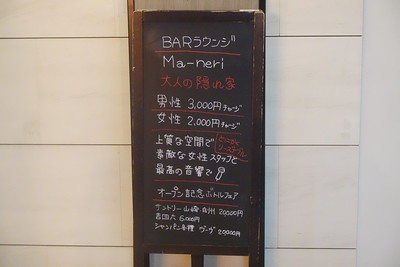 BARラウンジ
Ma-neri
大人の隠れ家
男性 3,000円チャージ
女性 2,000円チャージ
上質な空間で
素敵な女性スタッフと
最高の音響で
オープン記念ボトルフェア
サントリー山崎・白州 20,000円
吉四六 6,000円
シャンパン各種 ヴーヴ 20,000円